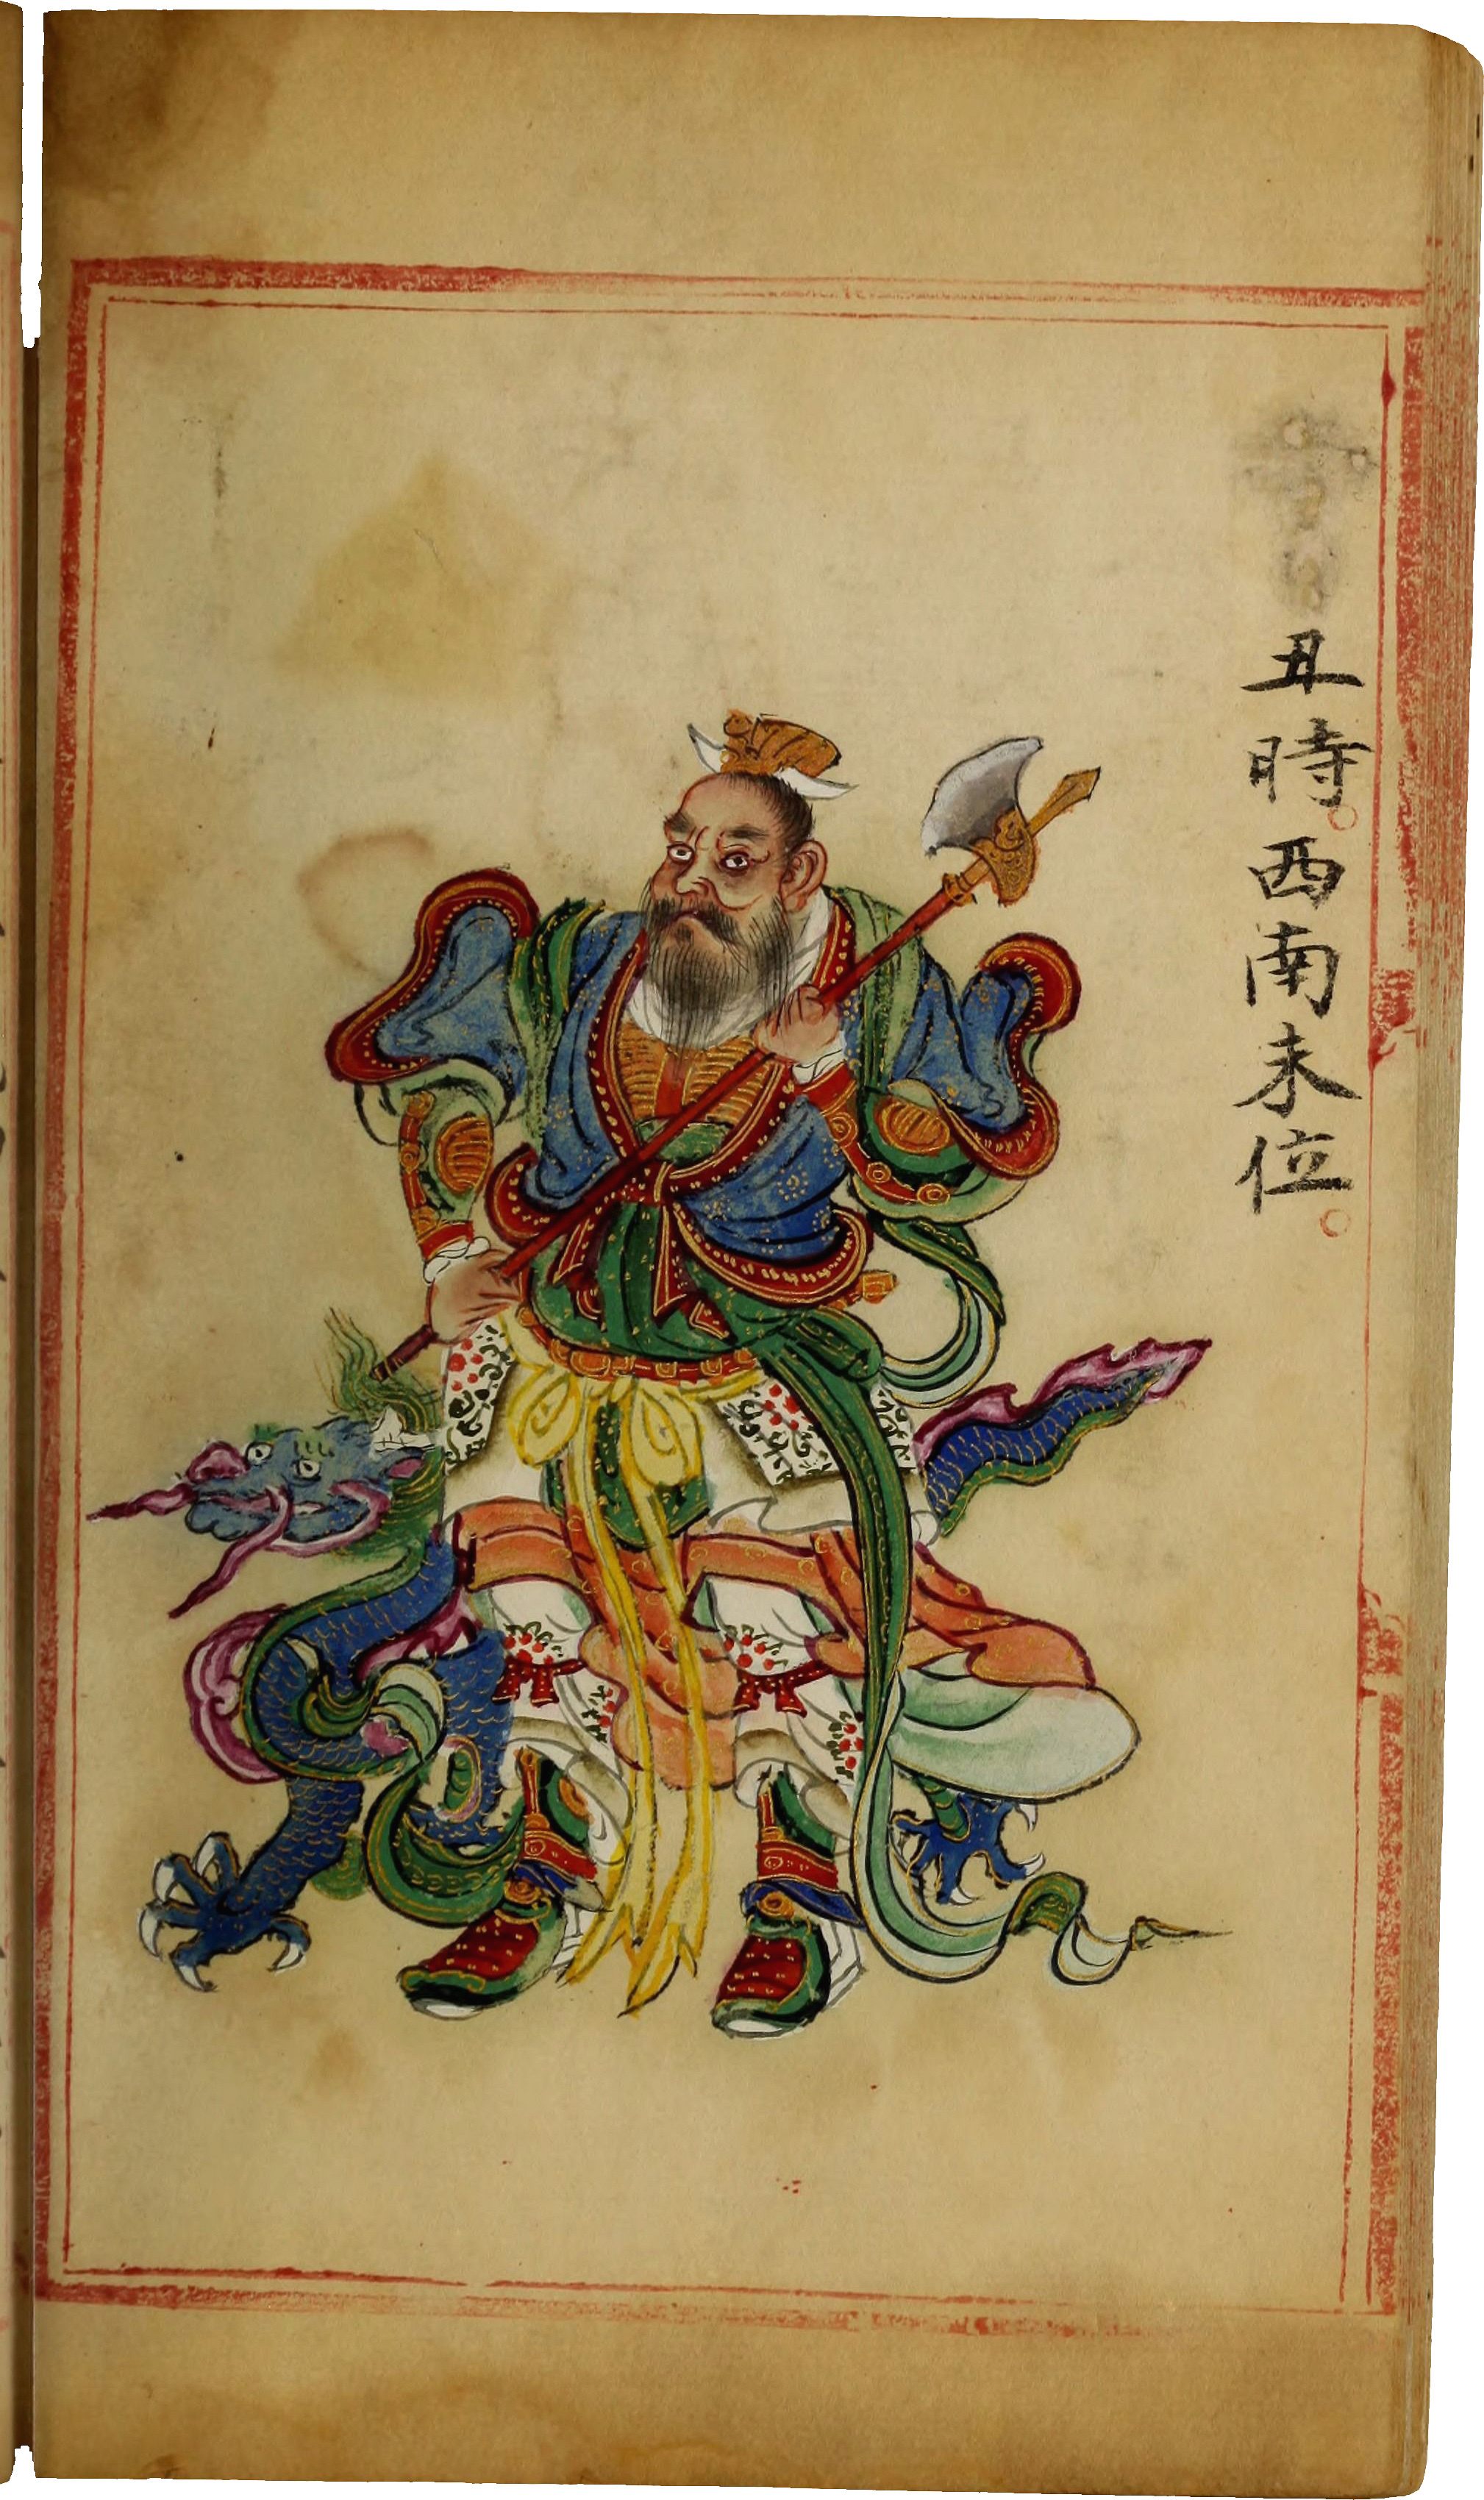 丑時。西南未位。